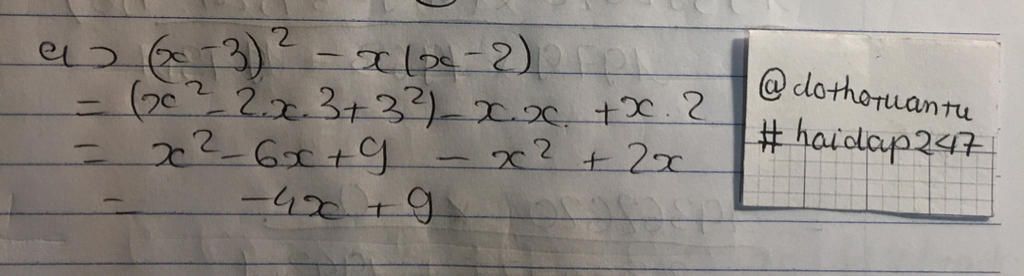 a> (x - 3)² - x(x - 2)
= (x² - 2.x.3 + 3²) - x.x. + x.2
= x² - 6x + 9 - x² + 2x
= -4x + 9
@dothotuantu
# haidap247